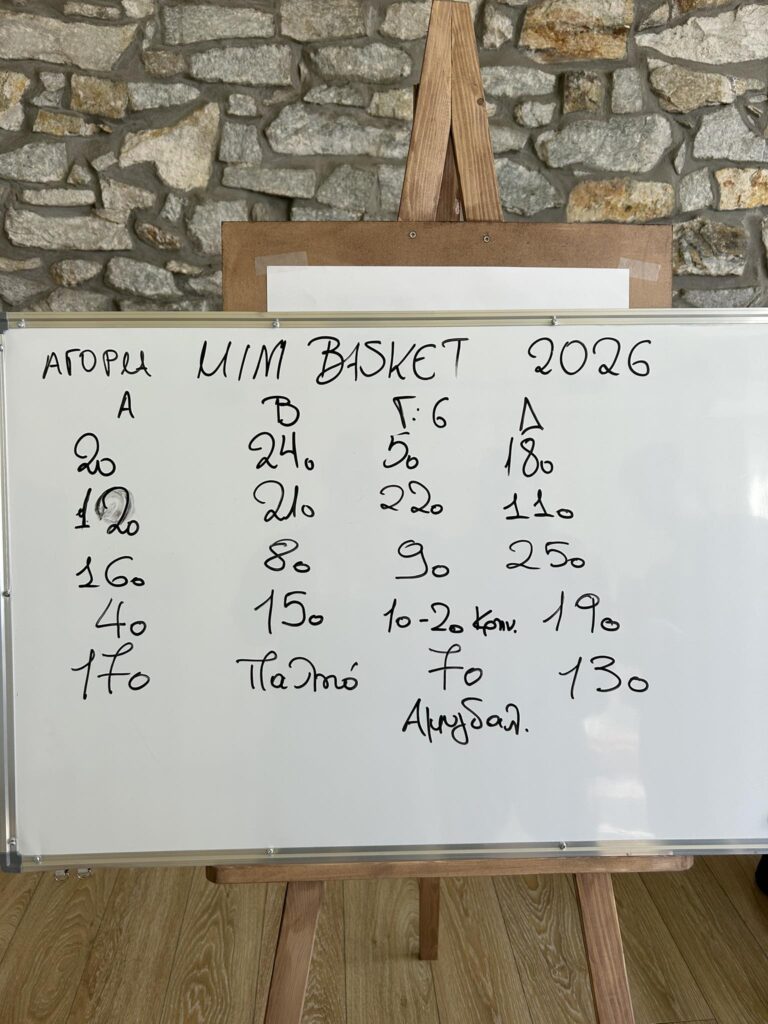 ΑΓΟΡΙΑ MINI BASKET 2026
Α Β Γ: 6 Δ
2ο 24ο 5ο 18ο
12ο 21ο 22ο 11ο
16ο 8ο 9ο 25ο
4ο 15ο 1ο-2ο Κρην. 19ο
17ο Παληό 7ο 13ο
Αμυγδαλ.